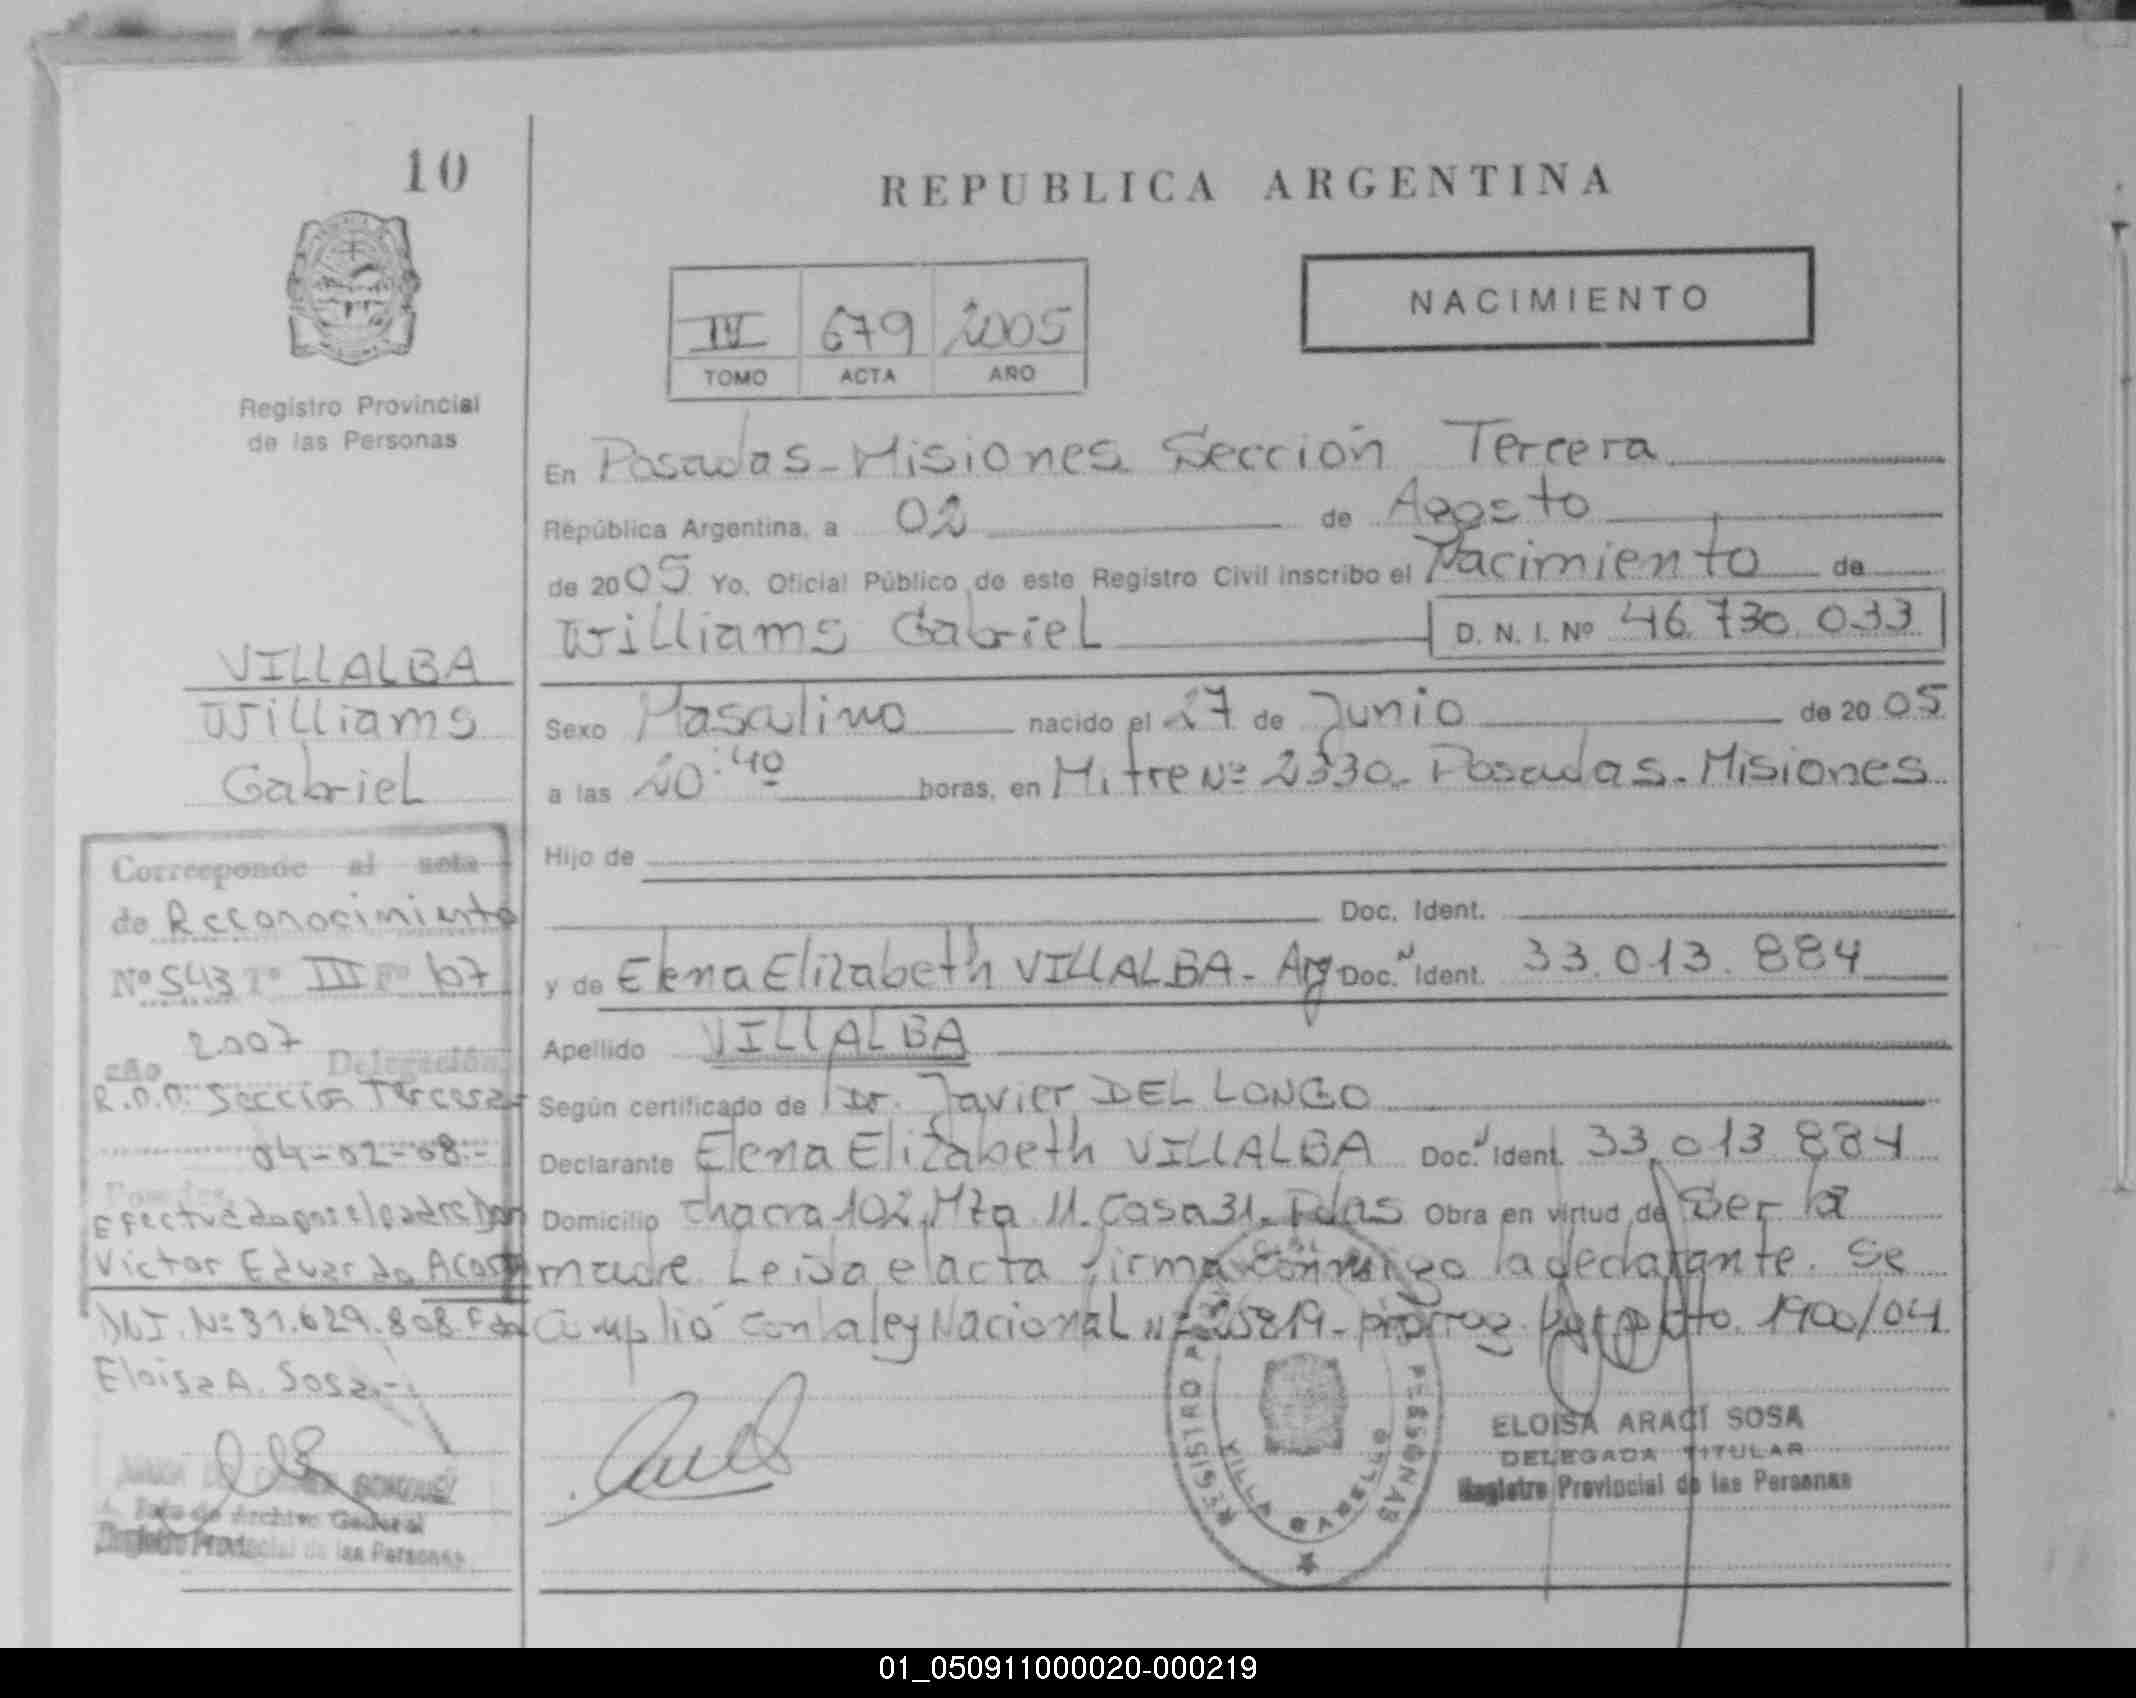 10
REPUBLICA ARGENTINA
NACIMIENTO
IV 679 2005
TOMO ACTA AÑO
Registro Provincial
de las Personas
En Posadas - Misiones Sección Tercera
República Argentina, a 02 de Agosto
de 2005 Yo, Oficial Público de este Registro Civil inscribo el Nacimiento de
Williams Gabriel D. N. I. Nº 46.730.033
VILLALBA
Williams
Gabriel
Sexo Masculino nacido el 27 de Junio de 2005
a las 20:40 horas, en Mitre Nº 2330 - Posadas - Misiones
Hijo de
Doc. Ident.
y de Elena Elizabeth VILLALBA - Arg Doc. Ident. 33.013.884
Apellido VILLALBA
Según certificado de Dr. Javier DEL LONGO
Declarante Elena Elizabeth VILLALBA Doc. Ident. 33.013.884
Domicilio Chacra 102, Mza 11. Casa 31. Pdas Obra en virtud de Ser la
madre Leida el acta firma conmigo la declarante. Se
Cumplió con la ley Nacional Nº 25819 - prorrog. por Dto. 1900/04
Corresponde al acta
de Reconocimiento
Nº 543 Tº III Fº 67
año 2007 Delegación
R.P.P. Sección Tercera
04-02-08.-
Posadas,
Efectuada por el padre Don
Victor Eduardo Acosta
DNI. Nº 31.629.808. Fdo
Eloisa A. Sosa.-
GONZALEZ
Jefe de Archivo General
Registro Provincial de las Personas
REGISTRO PERSONAS
VILLA CABELLO
ELOISA ARACI SOSA
DELEGADA TITULAR
Registro Provincial de las Personas
01_050911000020-000219